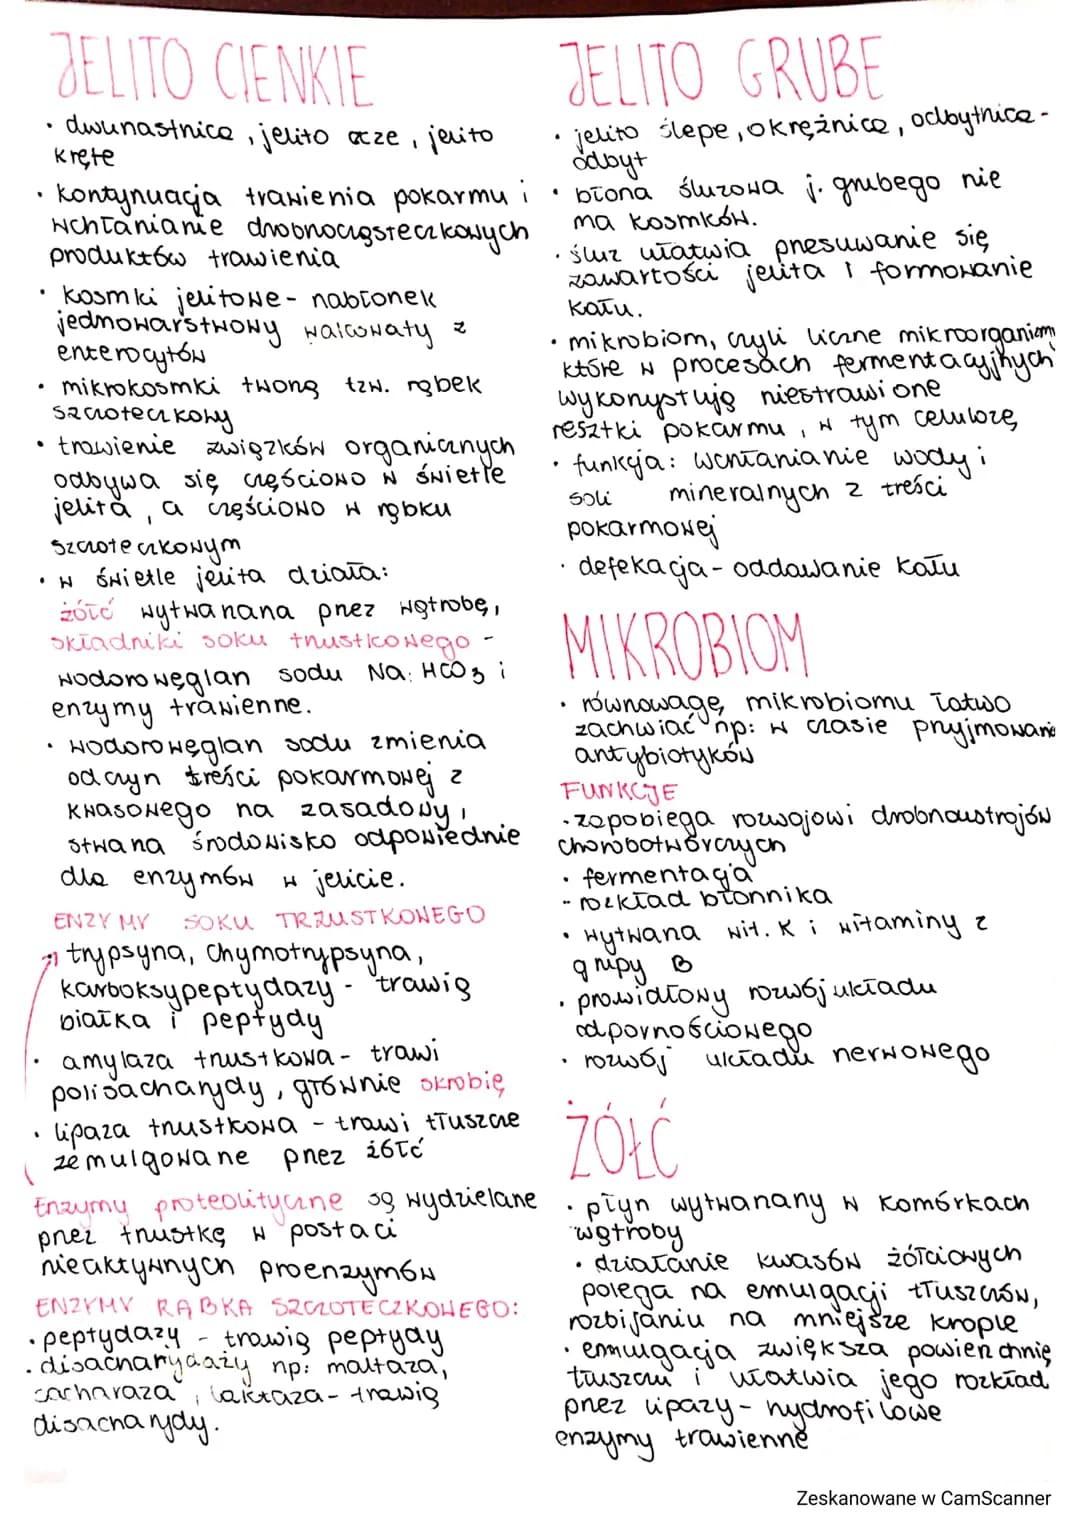 JELITO CIENKIE
• dwunastnica, jelito czcze, jelito
kręte
• kontynuacja trawienia pokarmu i
wchłanianie drobnocząsteczkowych
produktów trawienia
• kosmki jelitowe - nabłonek
jednowarstwowy walcowaty z
enterocytów
• mikrokosmki tworzą tzw. rąbek
szczoteczkowy
• trawienie związków organicznych
odbywa się częściowo w świetle
jelita, a częściowo w rąbku
szczoteczkowym
• w świetle jelita działa:
żółć wytwarzana przez wątrobę,
składniki soku trzustkowego -
wodorowęglan sodu Na: HCO3 i
enzymy trawienne.
• wodorowęglan sodu zmienia
odczyn treści pokarmowej z
kwasowego na zasadowy,
stwarza środowisko odpowiednie
dla enzymów w jelicie.
ENZYMY SOKU TRZUSTKOWEGO
trypsyna, chymotrypsyna,
karboksypeptydazy - trawią
białka i peptydy
• amylaza trzustkowa - trawi
polisacharydy, głównie skrobię
• lipaza trzustkowa - trawi tłuszcze
zemulgowane przez żółć
Enzymy proteolityczne są wydzielane
przez trzustkę w postaci
nieaktywnych proenzymów
ENZYMY RĄBKA SZCZOTECZKOWEGO:
• peptydazy - trawią peptydy
• disacharydazy np: maltaza,
sacharaza, laktaza - trawią
disacharydy.
JELITO GRUBE
• jelito ślepe, okrężnica, odbytnica -
odbyt
• błona śluzowa j. grubego nie
ma kosmków.
• śluz ułatwia przesuwanie się
zawartości jelita i formowanie
kału.
• mikrobiom, czyli liczne mikroorganizm
które w procesach fermentacyjnych
wykorzystują niestrawione
resztki pokarmu, w tym celulozę
• funkcja: wchłanianie wody i
soli mineralnych z treści
pokarmowej
• defekacja - oddawanie kału
MIKROBIOM
• równowagę mikrobiomu łatwo
zachwiać np: w czasie przyjmowania
antybiotyków
FUNKCJE
• zapobiega rozwojowi drobnoustrojów
chorobotwórczych
• fermentacja
- rozkład błonnika
• wytwarza wit. K i witaminy z
grupy B
• prawidłowy rozwój układu
odpornościowego
• rozwój układu nerwowego
ŻÓŁĆ
• płyn wytwarzany w komórkach
wątroby
• działanie kwasów żółciowych
polega na emulgacji tłuszczów,
rozbijaniu na mniejsze krople
• emulgacja zwiększa powierzchnię
tłuszczu i ułatwia jego rozkład
przez lipazy - hydrofilowe
enzymy trawienne
Zeskanowane w CamScanner